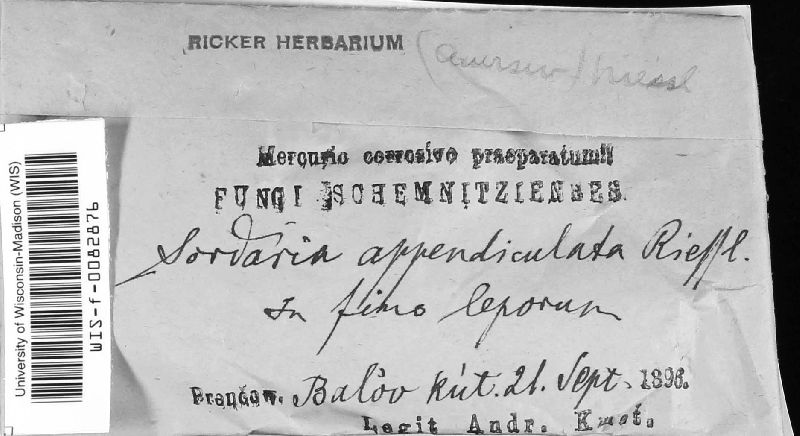 RICKER HERBARIUM (Auersw) Niessl
Mercurio corrosivo praeparatum!!
FUNGI SCHEMNITZIENSES.
Sordaria appendiculata Rieſsl.
In fimo leporum
Prenčow. Balóv kút. 21. Sept. 1896.
Legit Andr. Kmeť.
University of Wisconsin-Madison (WIS)
WIS-f-0082876